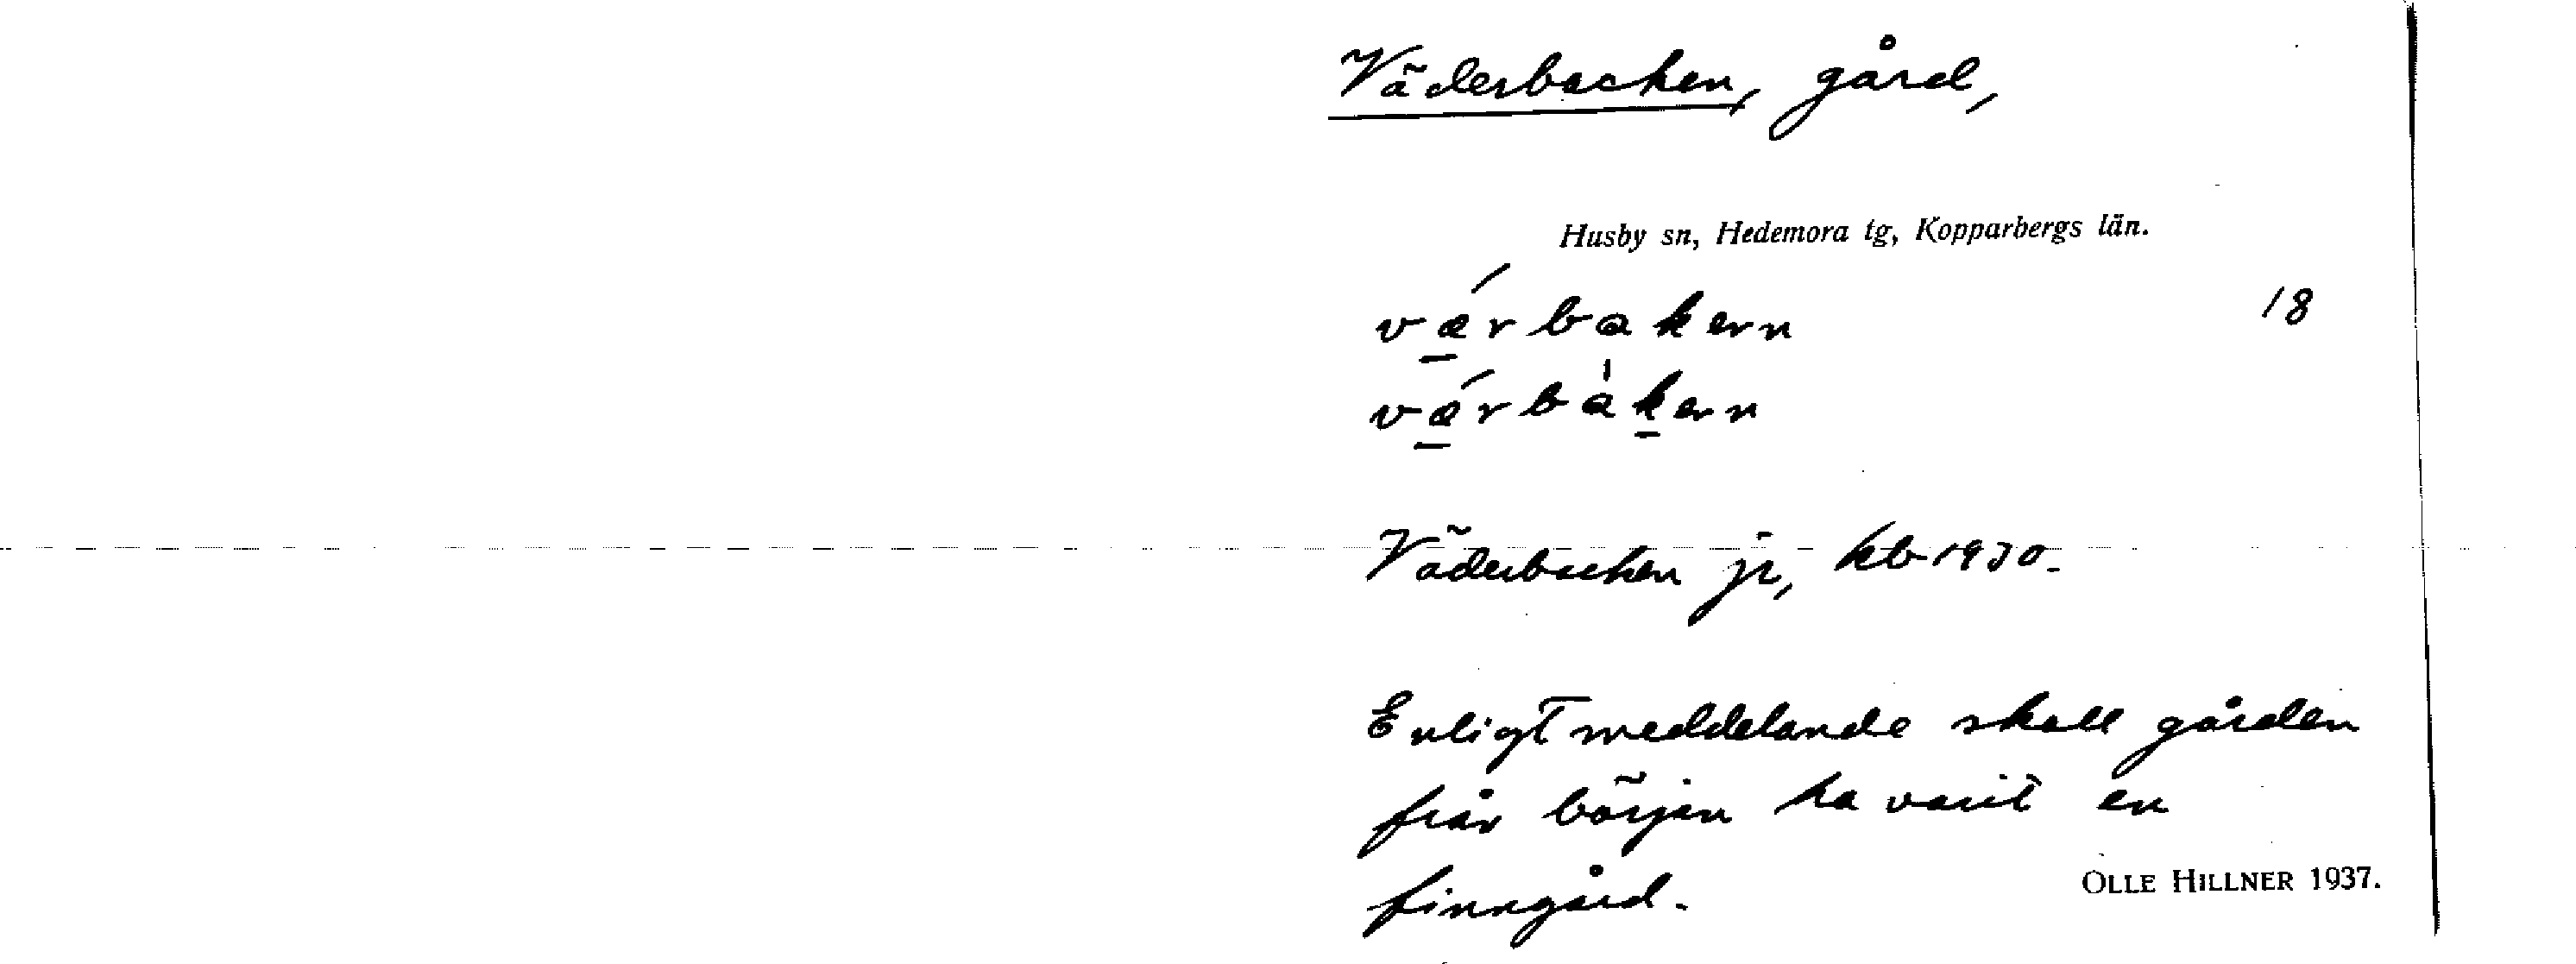 Väderbacken, gård,
Husby sn, Hedemora tg, Kopparbergs län.
vǽrbakern 18
vǽrbàkern
Väderbacken jr, kb 1930.
Enligt meddelande skall gården
från början ha varit en
finngård.
OLLE HILLNER 1937.